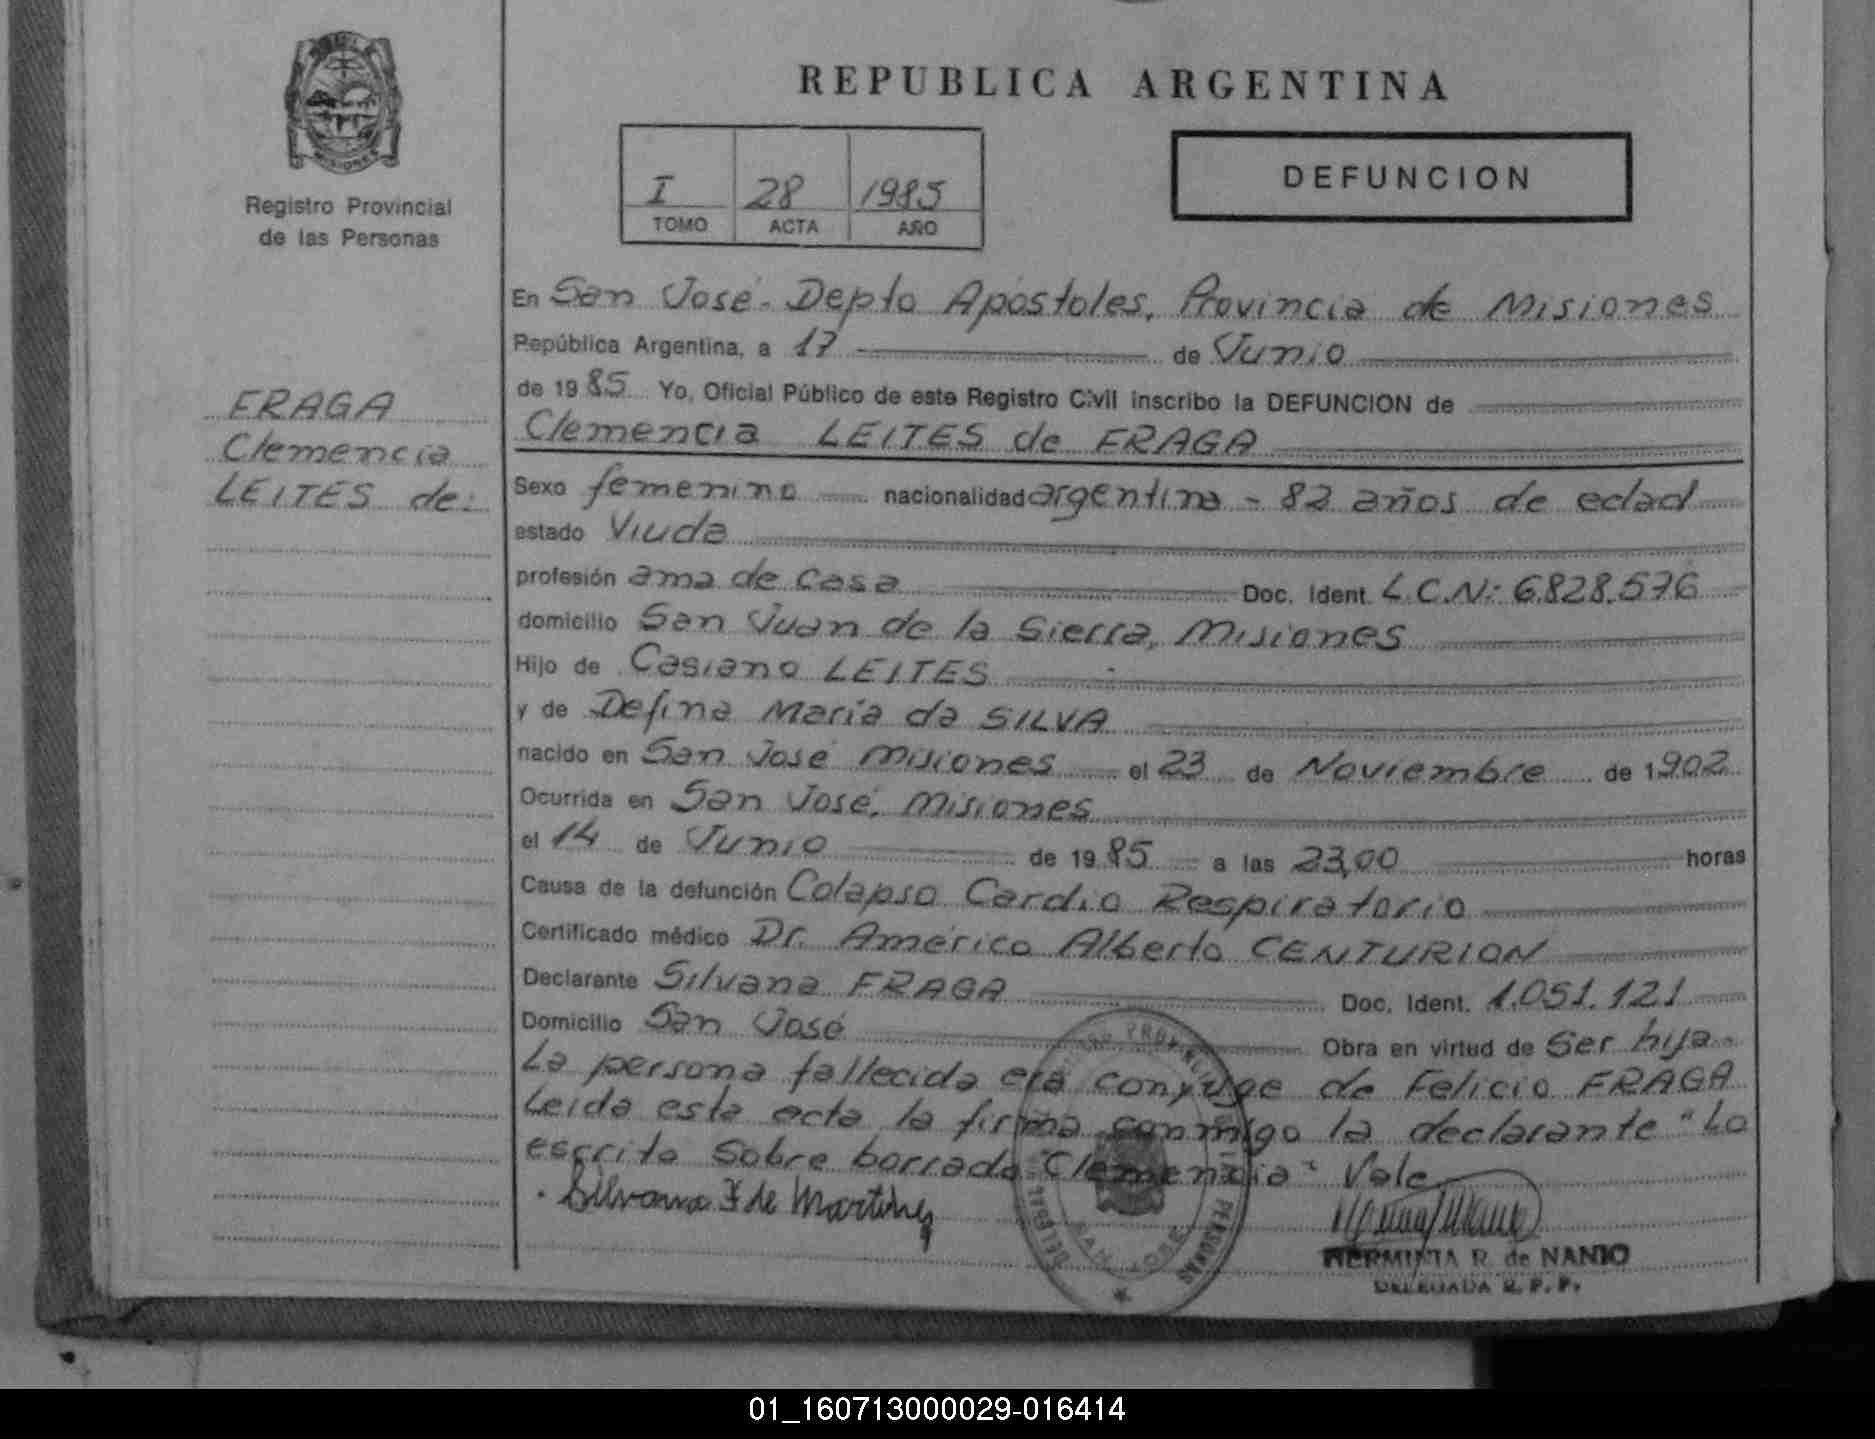 MISIONES
Registro Provincial
de las Personas
FRAGA
Clemencia
LEITES de.
REPUBLICA ARGENTINA
I 28 1985
TOMO ACTA AÑO
DEFUNCION
En San José. Depto Apóstoles, Provincia de Misiones
República Argentina, a 17 de Junio
de 1985 Yo, Oficial Público de este Registro Civil inscribo la DEFUNCION de
Clemencia LEITES de FRAGA
Sexo femenino nacionalidad argentina - 82 años de edad
estado Viuda
profesión ama de casa Doc. Ident. L.C.N: 6.828.576
domicilio San Juan de la Sierra, Misiones
Hijo de Casiano LEITES
y de Defina María da SILVA
nacido en San José Misiones el 23 de Noviembre de 1902
Ocurrida en San José, Misiones
el 14 de Junio de 1985 a las 23,00 horas
Causa de la defunción Colapso Cardio Respiratorio
Certificado médico Dr. Américo Alberto CENTURION
Declarante Silvana FRAGA Doc. Ident. 1.051.121
Domicilio San José Obra en virtud de Ser hija.
La persona fallecida era conyuge de Felicio FRAGA
Leida esta acta la firma conmigo la declarante "Lo
escrito sobre borrado "Clemencia" Vale
Silvana F de Martinez
HERMINIA R. de NANIO
DELEGADA R. P. P.
SAN JOSE
PERSONAS
01_160713000029-016414